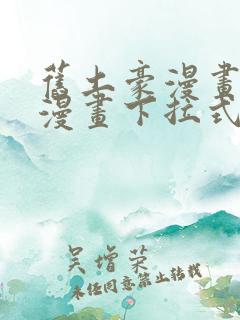 舊土豪漫畫
漫畫下拉式
吴增荣
未经同意禁止转载